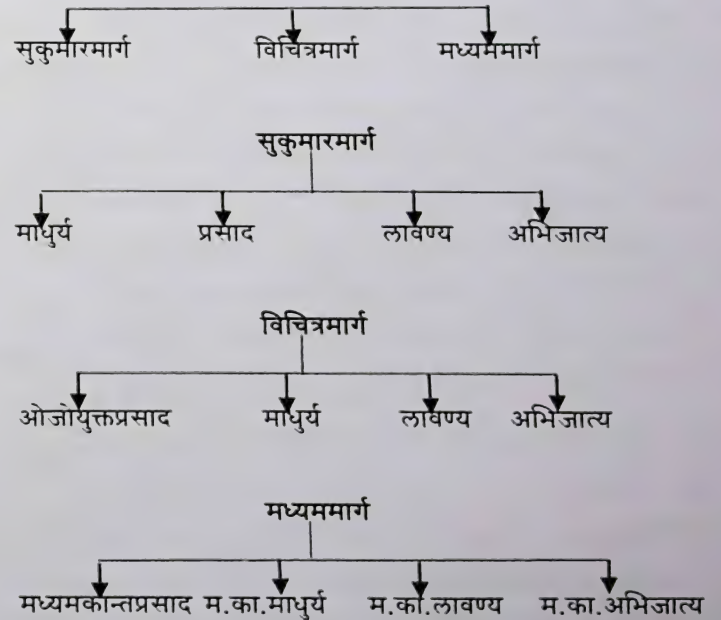 सुकुमारमार्ग विचित्रमार्ग मध्यममार्ग
सुकुमारमार्ग
माधुर्य प्रसाद लावण्य अभिजात्य
विचित्रमार्ग
ओजोयुक्तप्रसाद माधुर्य लावण्य अभिजात्य
मध्यममार्ग
मध्यमकान्तप्रसाद म.का.माधुर्य म.का.लावण्य म.का.अभिजात्य